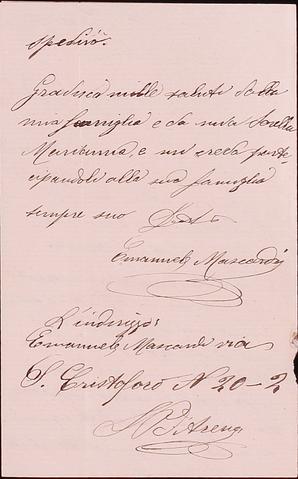 spedirò.
Gradisca mille saluti dalla
mia famiglia e da mia Sorella
Marianna, e mi creda parte-
cipandoli alla sua famiglia
sempre suo
Emanuele Mascardi
L'indirizzo:
Emanuele Mascardi via
S. Cristoforo N 20-2
S. P. d'Arena